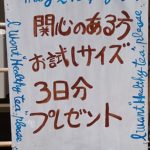 関心のある方
お試しサイズ
3日分
プレゼント
I Want Healthy tea, please
I Want Healthy tea, please